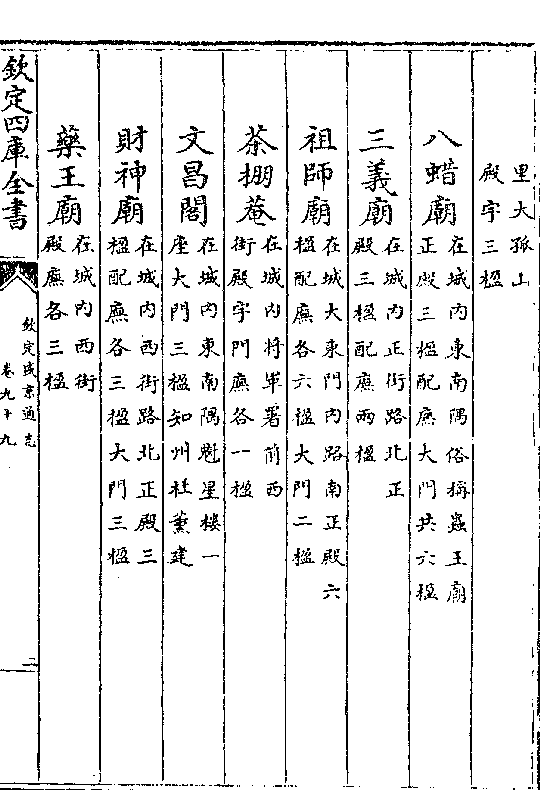 里大孤山
殿宇三楹
八蜡廟
在城内東南隅俗稱蟲王廟
正殿三楹配廡大門共六楹
三義廟
在城内正街路北正
殿三楹配廡兩楹
祖師廟
在城大東門内路南正殿六
楹配廡各六楹大門二楹
茶棚菴
在城内將軍署前西
街殿宇門廡各一楹
文昌閣
在城内東南隅魁星樓一
座大門三楹知州桂薰建
財神廟
在城内西街路北正殿三
楹配廡各三楹大門三楹
藥王廟
在城内西街
殿廡各三楹
欽定四庫全書
欽定盛京通志
卷九十九
二